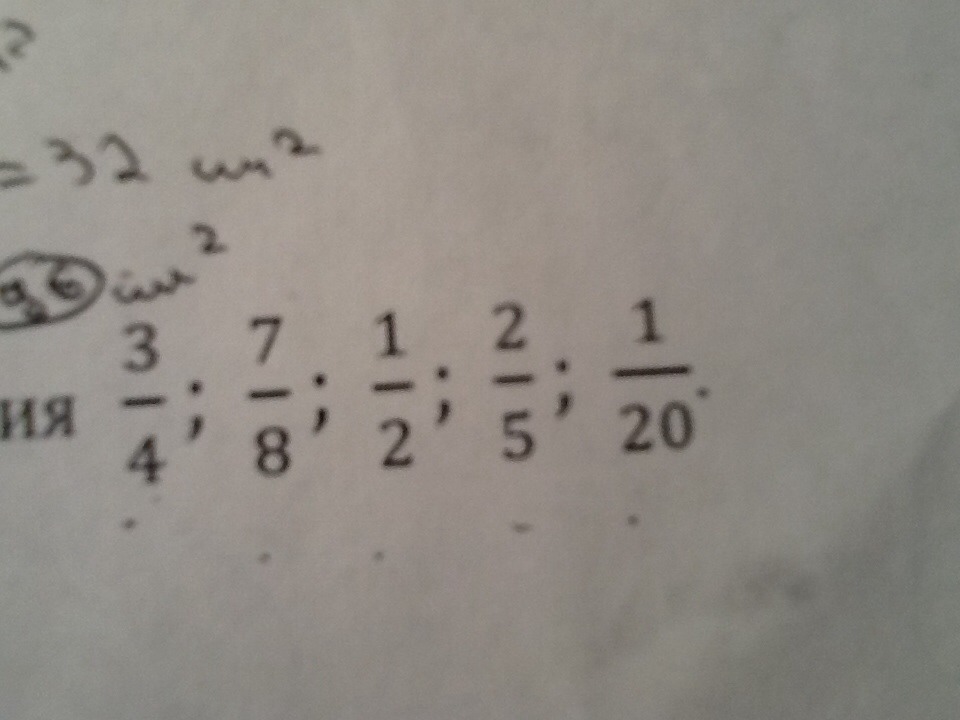 = 32 см²
см²
ия 3/4; 7/8; 1/2; 2/5; 1/20.